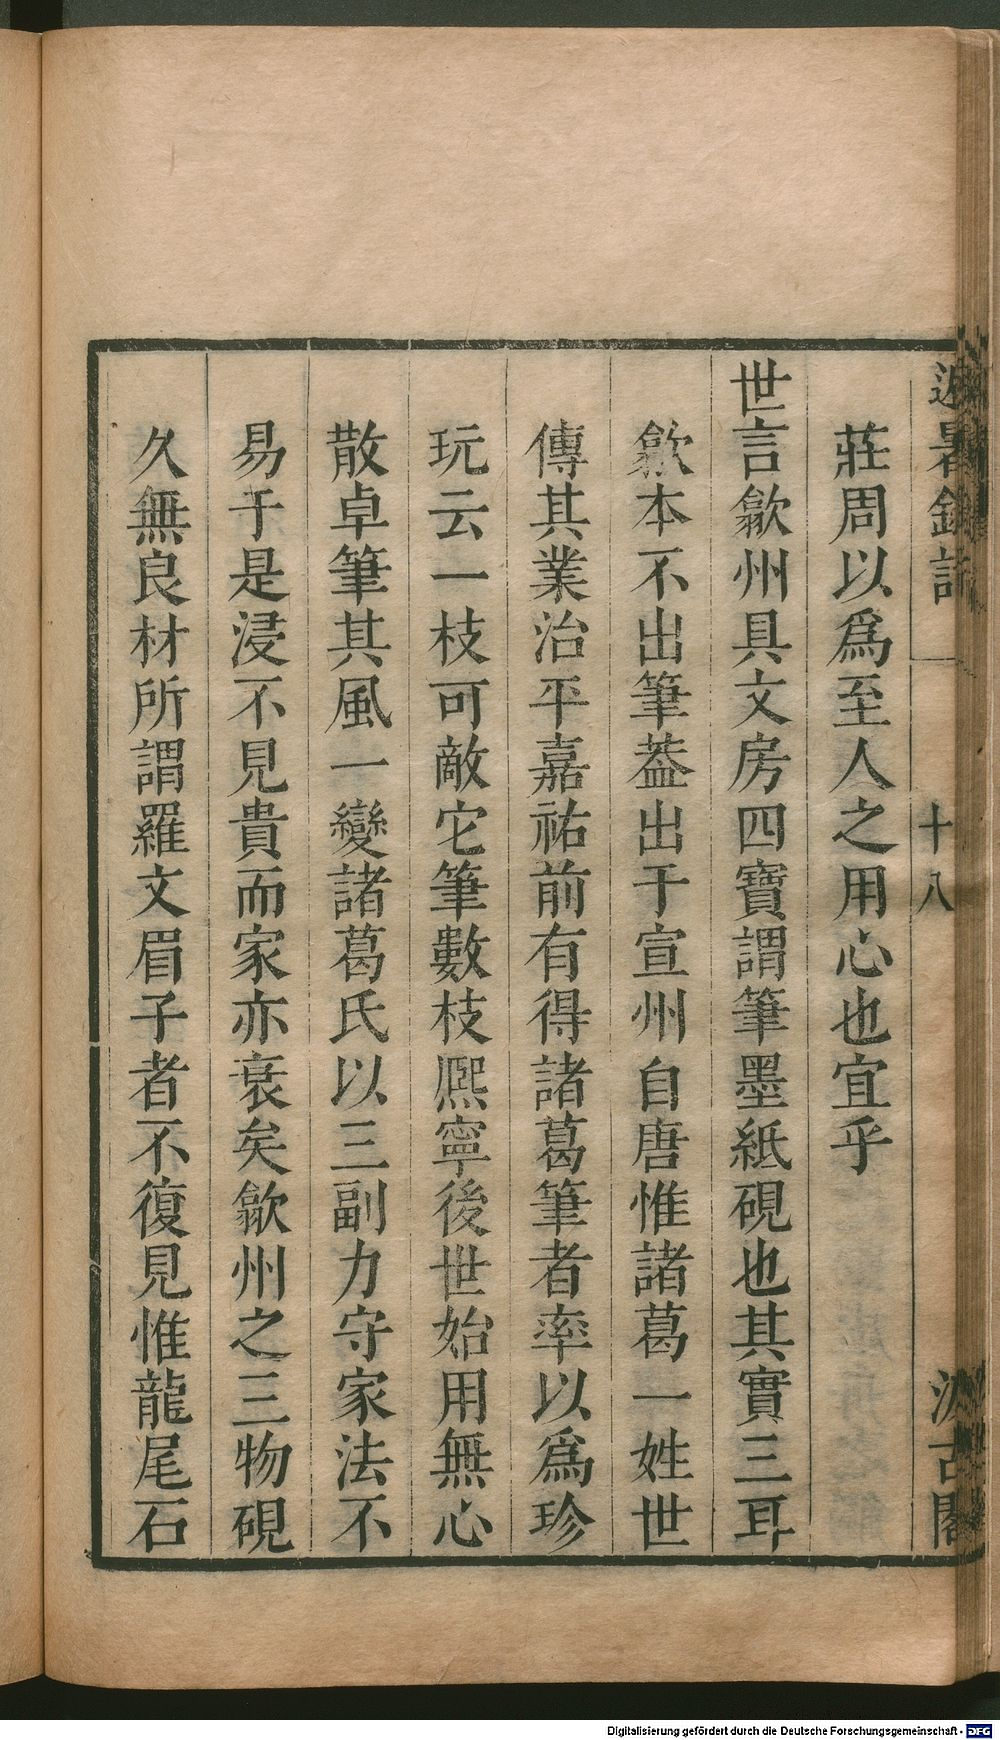 避暑錄話
十八
汲古閣
莊周以爲至人之用心也宜乎
世言歙州具文房四寶謂筆墨紙硯也其實三耳
歙本不出筆葢出于宣州自唐惟諸葛一姓世
傳其業治平嘉祐前有得諸葛筆者率以爲珍
玩云一枝可敵它筆數枝熈寧後世始用無心
散卓筆其風一變諸葛氏以三副力守家法不
易于是浸不見貴而家亦衰矣歙州之三物硯
久無良材所謂羅文眉子者不復見惟龍尾石
Digitalisierung gefördert durch die Deutsche Forschungsgemeinschaft - DFG